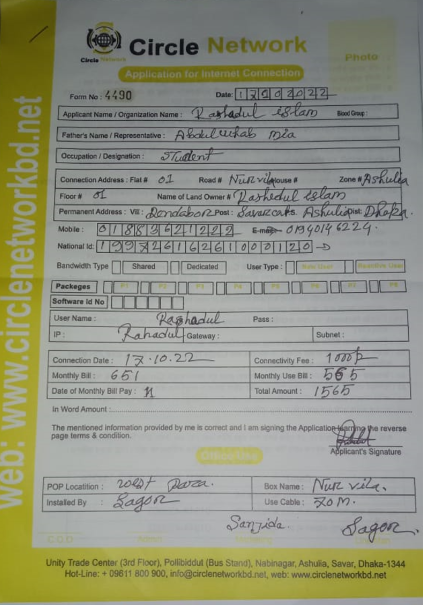 Circle Network
Circle Network
Photo
Application for Internet Connection
Form No : 4490
Date: 17102022
Applicant Name / Organization Name : Rashadul islam Blood Group :
Father's Name / Representative : Abdul wahab mia
Occupation / Designation : Student
Connection Address : Flat # 01 Road # Nur vila House # Zone # Ashulia
Floor # 01 Name of Land Owner # Rashedul islam
Permanent Address : Vill : Dendabor Post : Savar Ashulia Dist: Dhaka.
Mobile : E-mail-
National Id:
Bandwidth Type Shared Dedicated User Type : New User
Packages P1 P2 P3 P4 P5 P6 P7 P8
Software Id No
User Name : Rashadul Pass :
IP : Rahadul Gateway : Subnet :
Connection Date : 17.10.22 Connectivity Fee : 1000
Monthly Bill : 651 Monthly Use Bill : 565
Date of Monthly Bill Pay : Total Amount : 1565
In Word Amount :
The mentioned information provided by me is correct and I am signing the Application the reverse
page terms & condition.
Applicant's Signature
POP Locatition : West Para. Box Name : Nur vila.
Installed By : Sagor Use Cable : 70 M.
Sanjida. Sagor
C.O.O
Unity Trade Center (3rd Floor), Pollibiddut (Bus Stand), Nabinagar, Ashulia, Savar, Dhaka-1344
Hot-Line: + 09611 800 900, info@circlenetworkbd.net, web: www.circlenetworkbd.net
web: www.circlenetworkbd.net